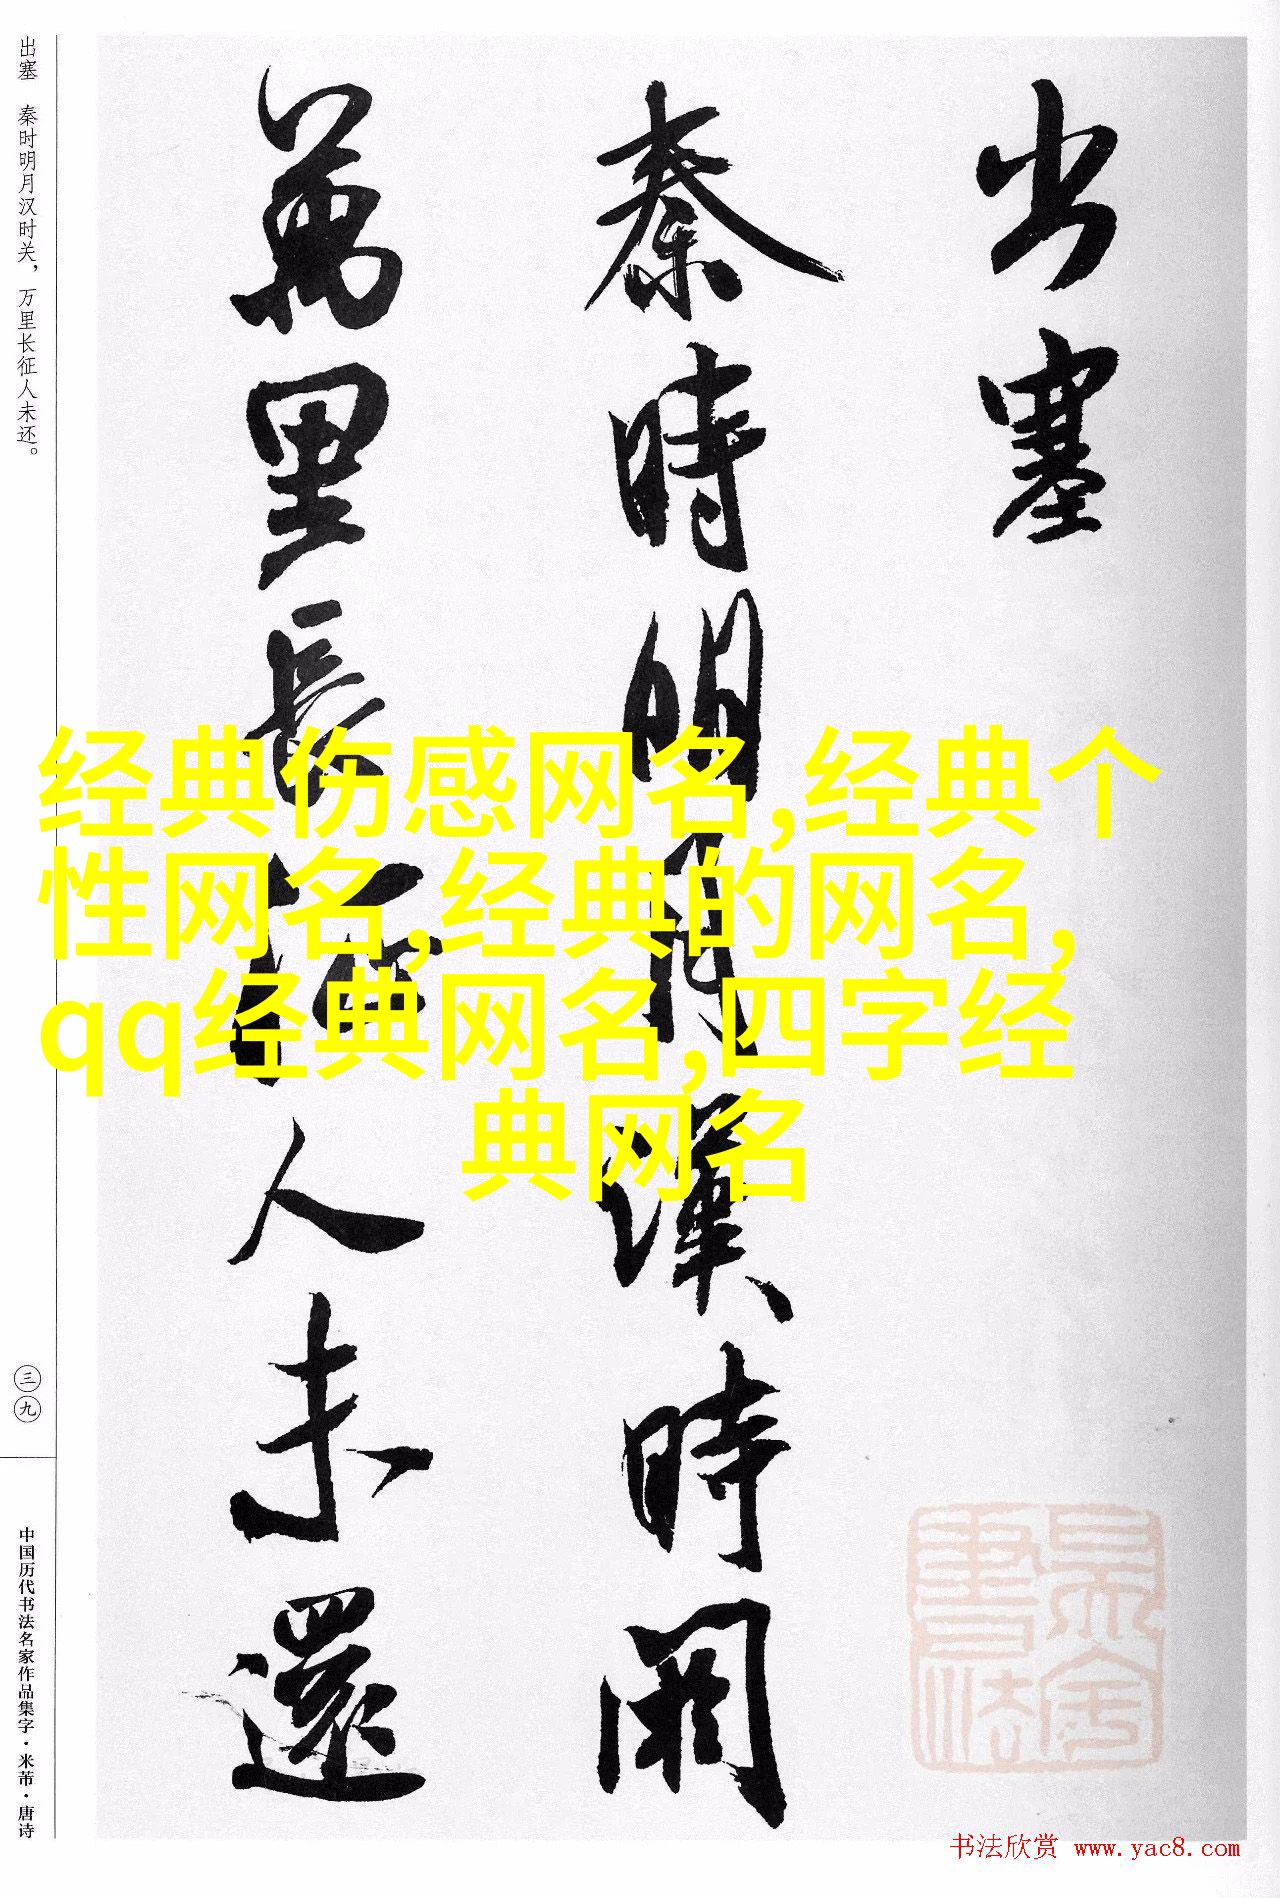 出塞
秦時明月漢時関
萬里長征人未還
出塞 秦时明月汉时关，万里长征人未还。
三九
中国历代书法名家作品集字·米芾·唐诗
经典伤感网名,经典个
性网名,经典的网名,
qq经典网名,四字经
典网名
书法欣赏 www.yac8.com